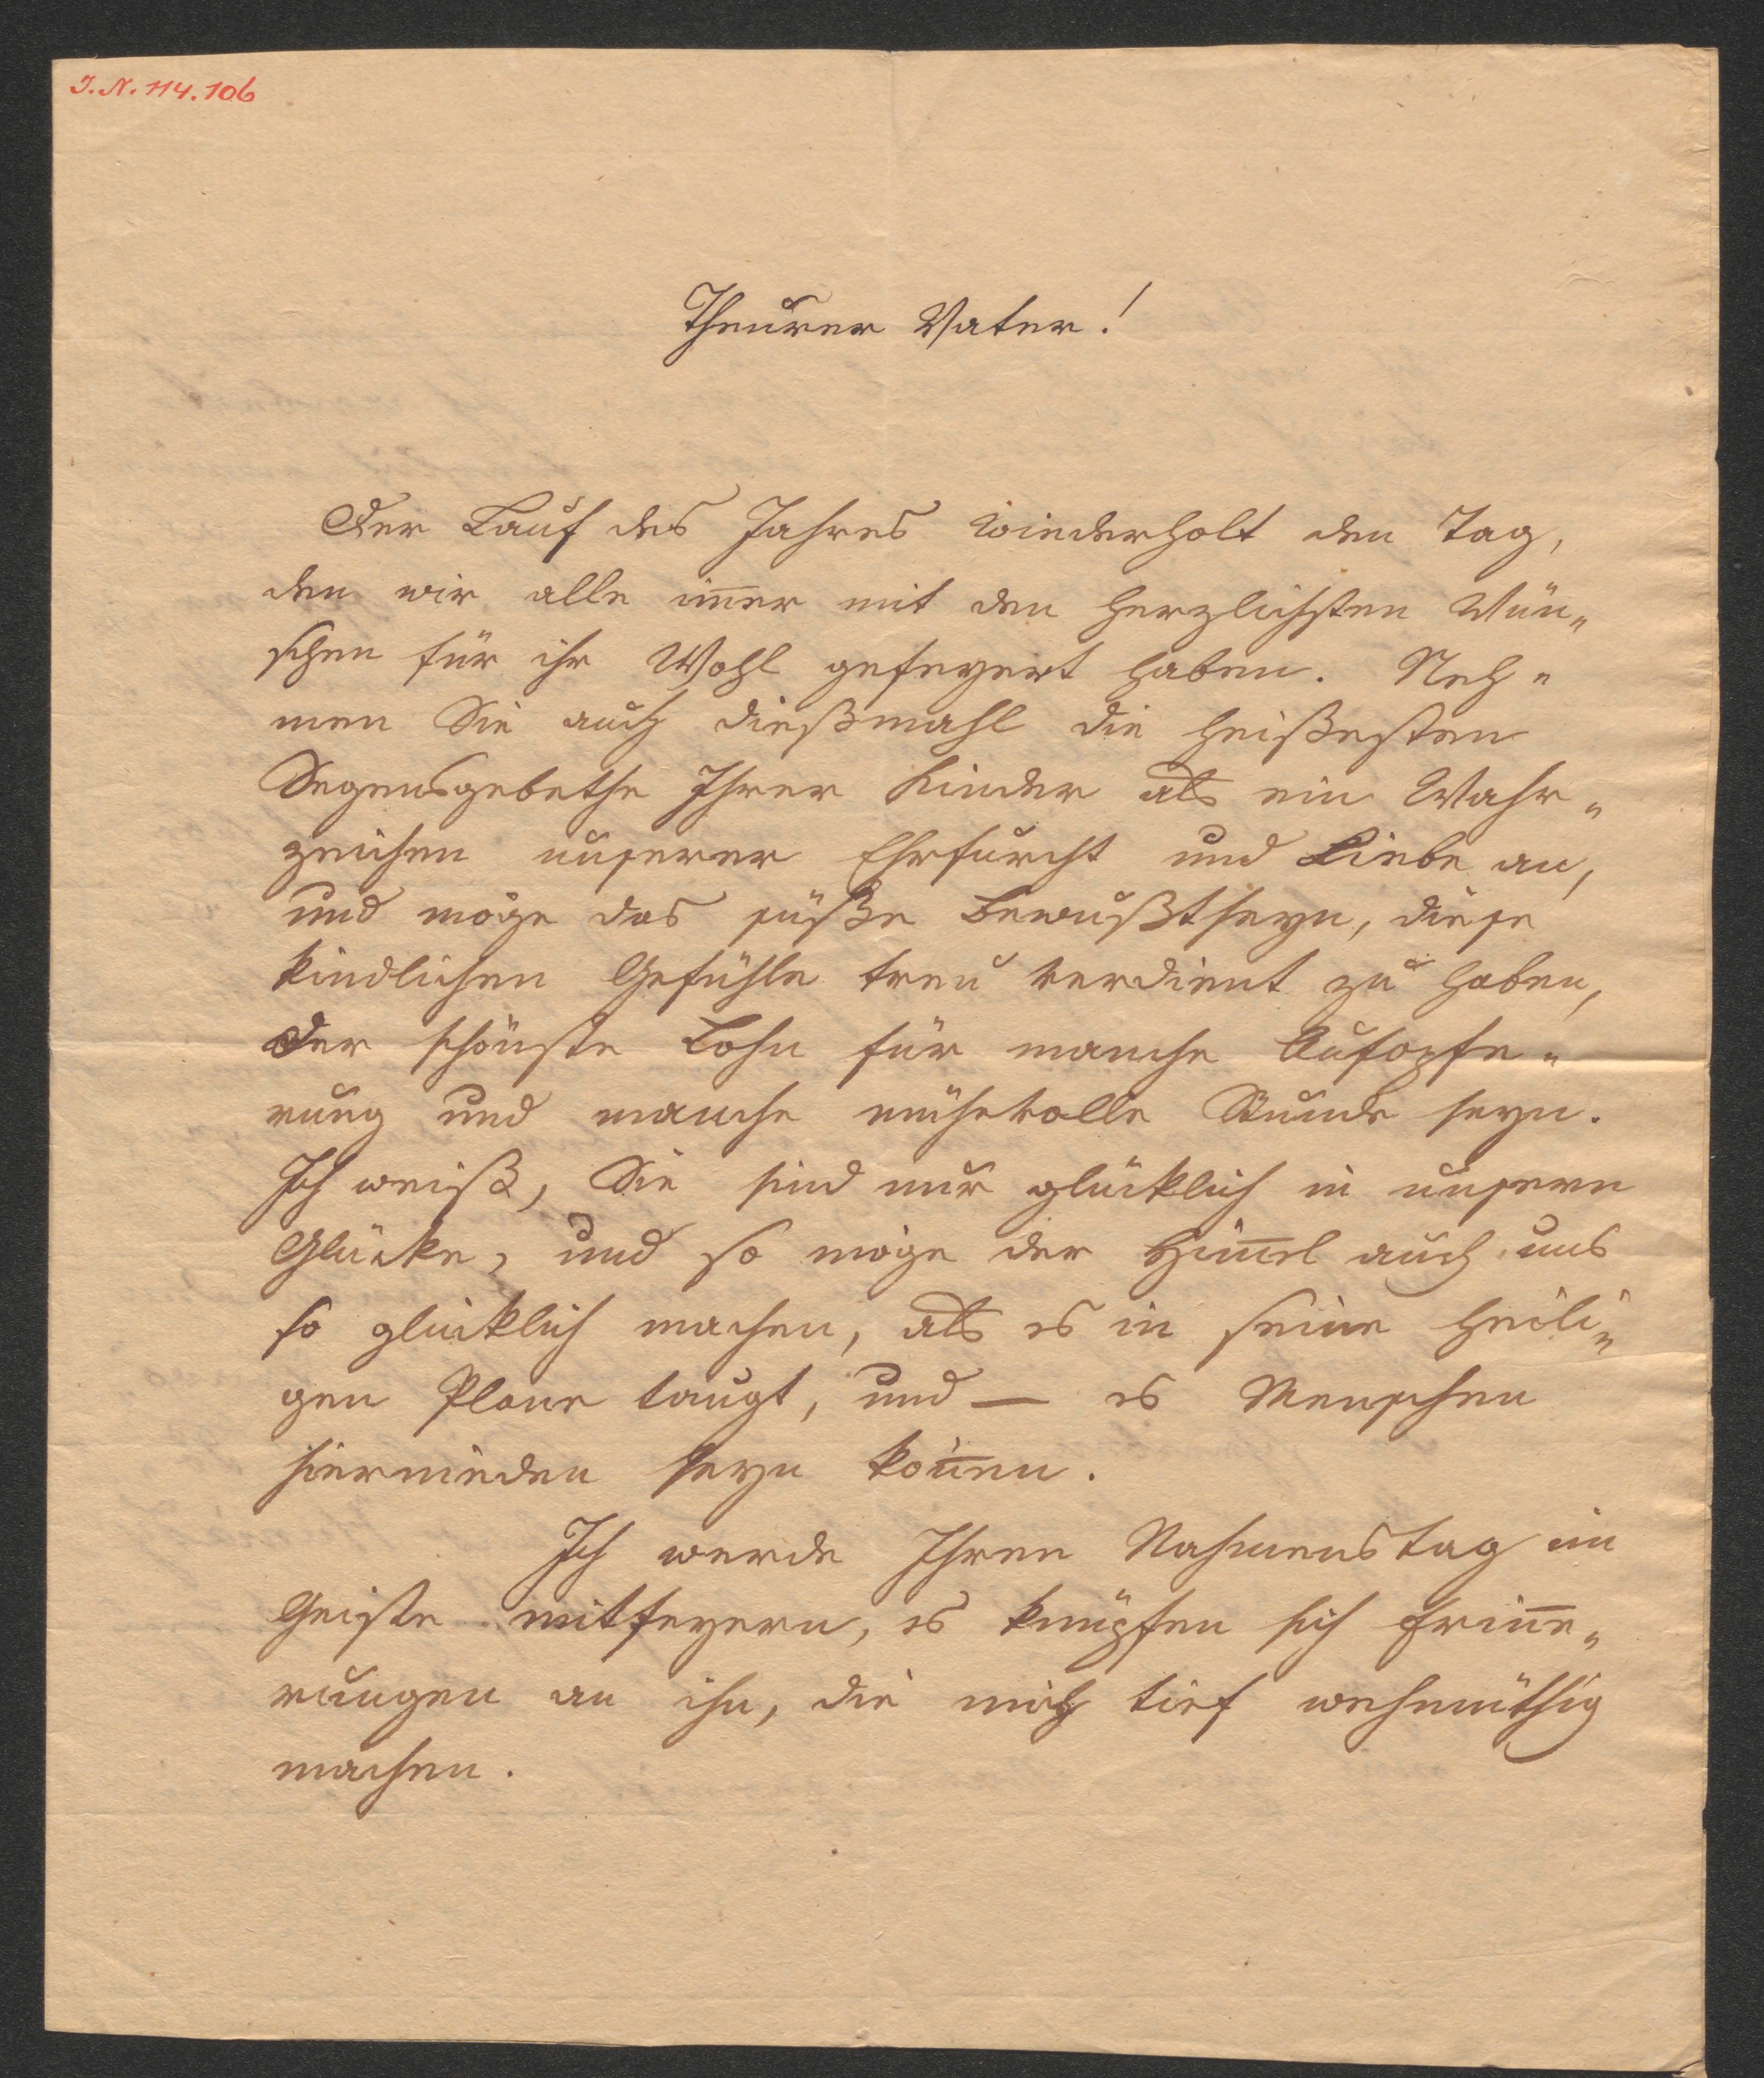 J. N. 114.106
Theurer Vater!
Der Lauf des Jahres wiederholt den Tag,
den wir alle im̅er mit den herzlichsten Wün„
schen für ihr Wohl gefeyert haben. Neh„
men Sie auch dießmahl die heißesten
Segensgebethe Ihrer Kinder als ein Wahr„
zeichen unserer Ehrfurcht und Liebe an,
und möge das süße Bewußtseyn, diese
kindlichen Gefühle treu verdient zu haben,
der schönste Lohn für manche Aufopfe„
rung und manche mühevolle Stunde seyn.
Ich weiß, Sie sind nur glücklich in unserm
Glücke, und so möge der Him̅el auch uns
so glücklich machen, als es in seine heili„
gen Plane taugt, und — es Menschen
hiernieden seyn kön̅en.
Ich werde Ihren Nahmenstag im
Geiste mitfeyern, es knüpfen sich Erin̅e„
rungen an ihn, die mich tief wehmüthig
machen.